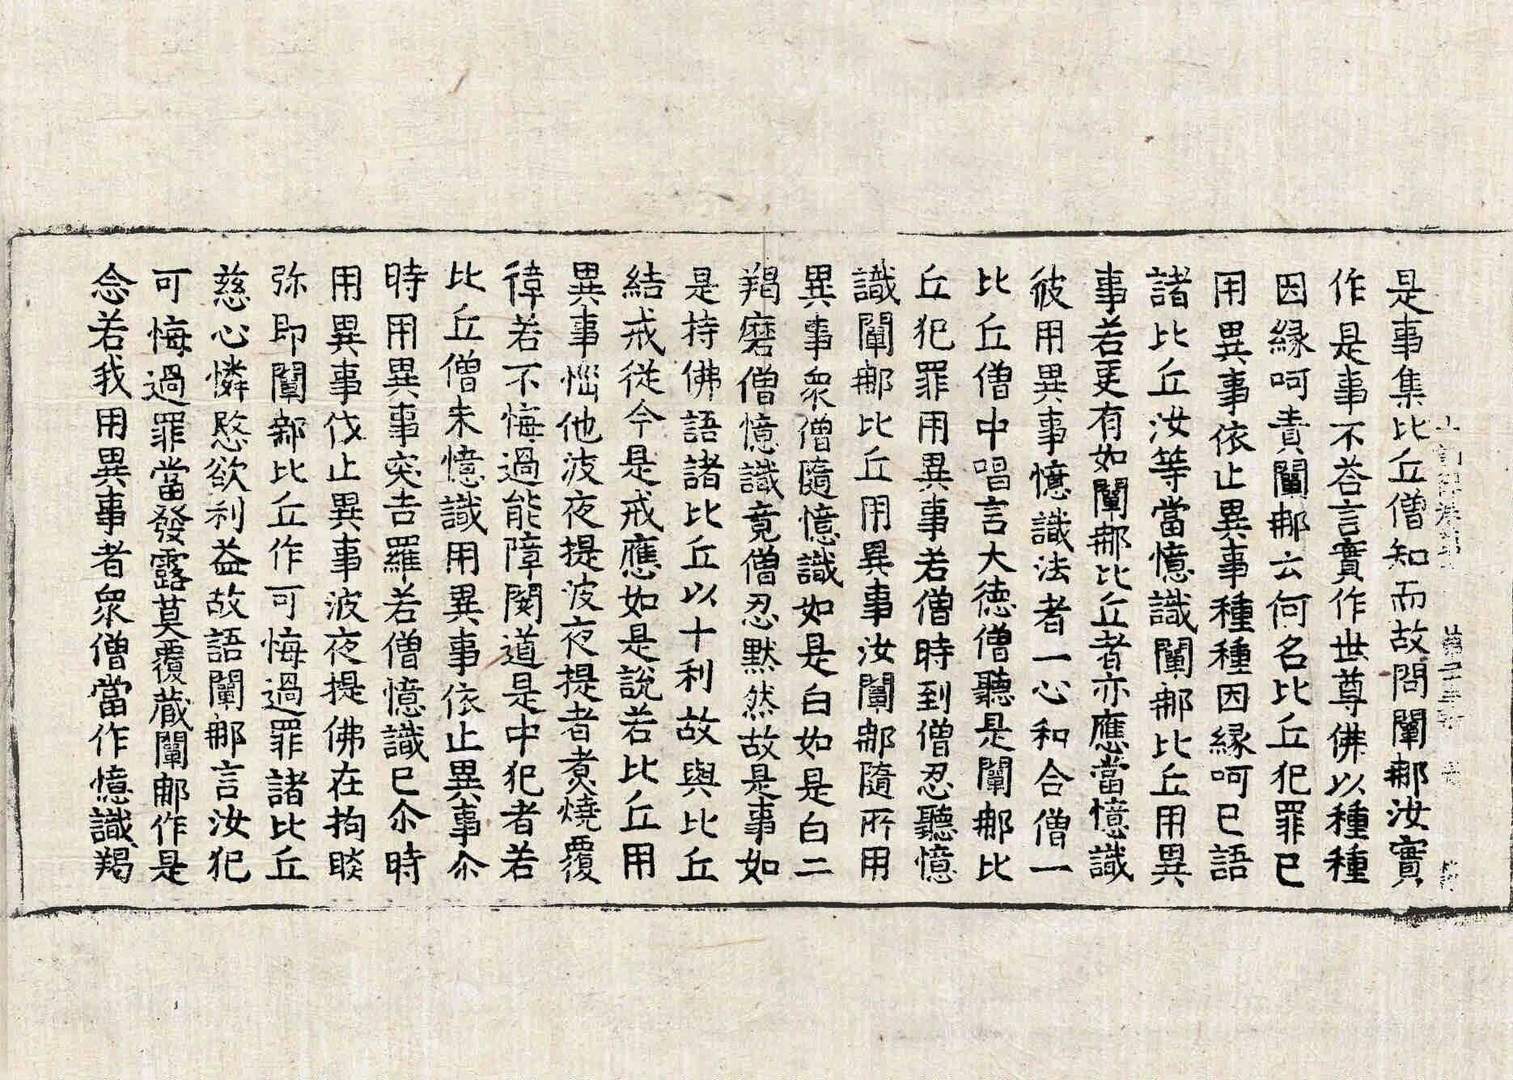 是事集比丘僧知而故問闡那汝實
作是事不荅言實作世尊佛以種種
因緣呵責闡那云何名比丘犯罪已
用異事依止異事種種因緣呵已語
諸比丘汝等當憶識闡那比丘用異
事若更有如闡那比丘者亦應當憶識
彼用異事憶識法者一心和合僧一
比丘僧中唱言大德僧聽是闡那比
丘犯罪用異事若僧時到僧忍聽憶
識闡那比丘用異事汝闡那隨所用
異事衆僧隨憶識如是白如是白二
羯磨僧憶識竟僧忍默然故是事如
是持佛語諸比丘以十利故與比丘
結戒從今是戒應如是說若比丘用
異事惱他波夜提波夜提者煮燒覆
障若不悔過能障閡道是中犯者若
比丘僧未憶識用異事依止異事尒
時用異事突吉羅若僧憶識已尒時
用異事依止異事波夜提佛在拘睒
弥即闡那比丘作可悔過罪諸比丘
慈心憐愍欲利益故語闡那言汝犯
可悔過罪當發露莫覆藏闡那作是
念若我用異事者衆僧當作憶識羯